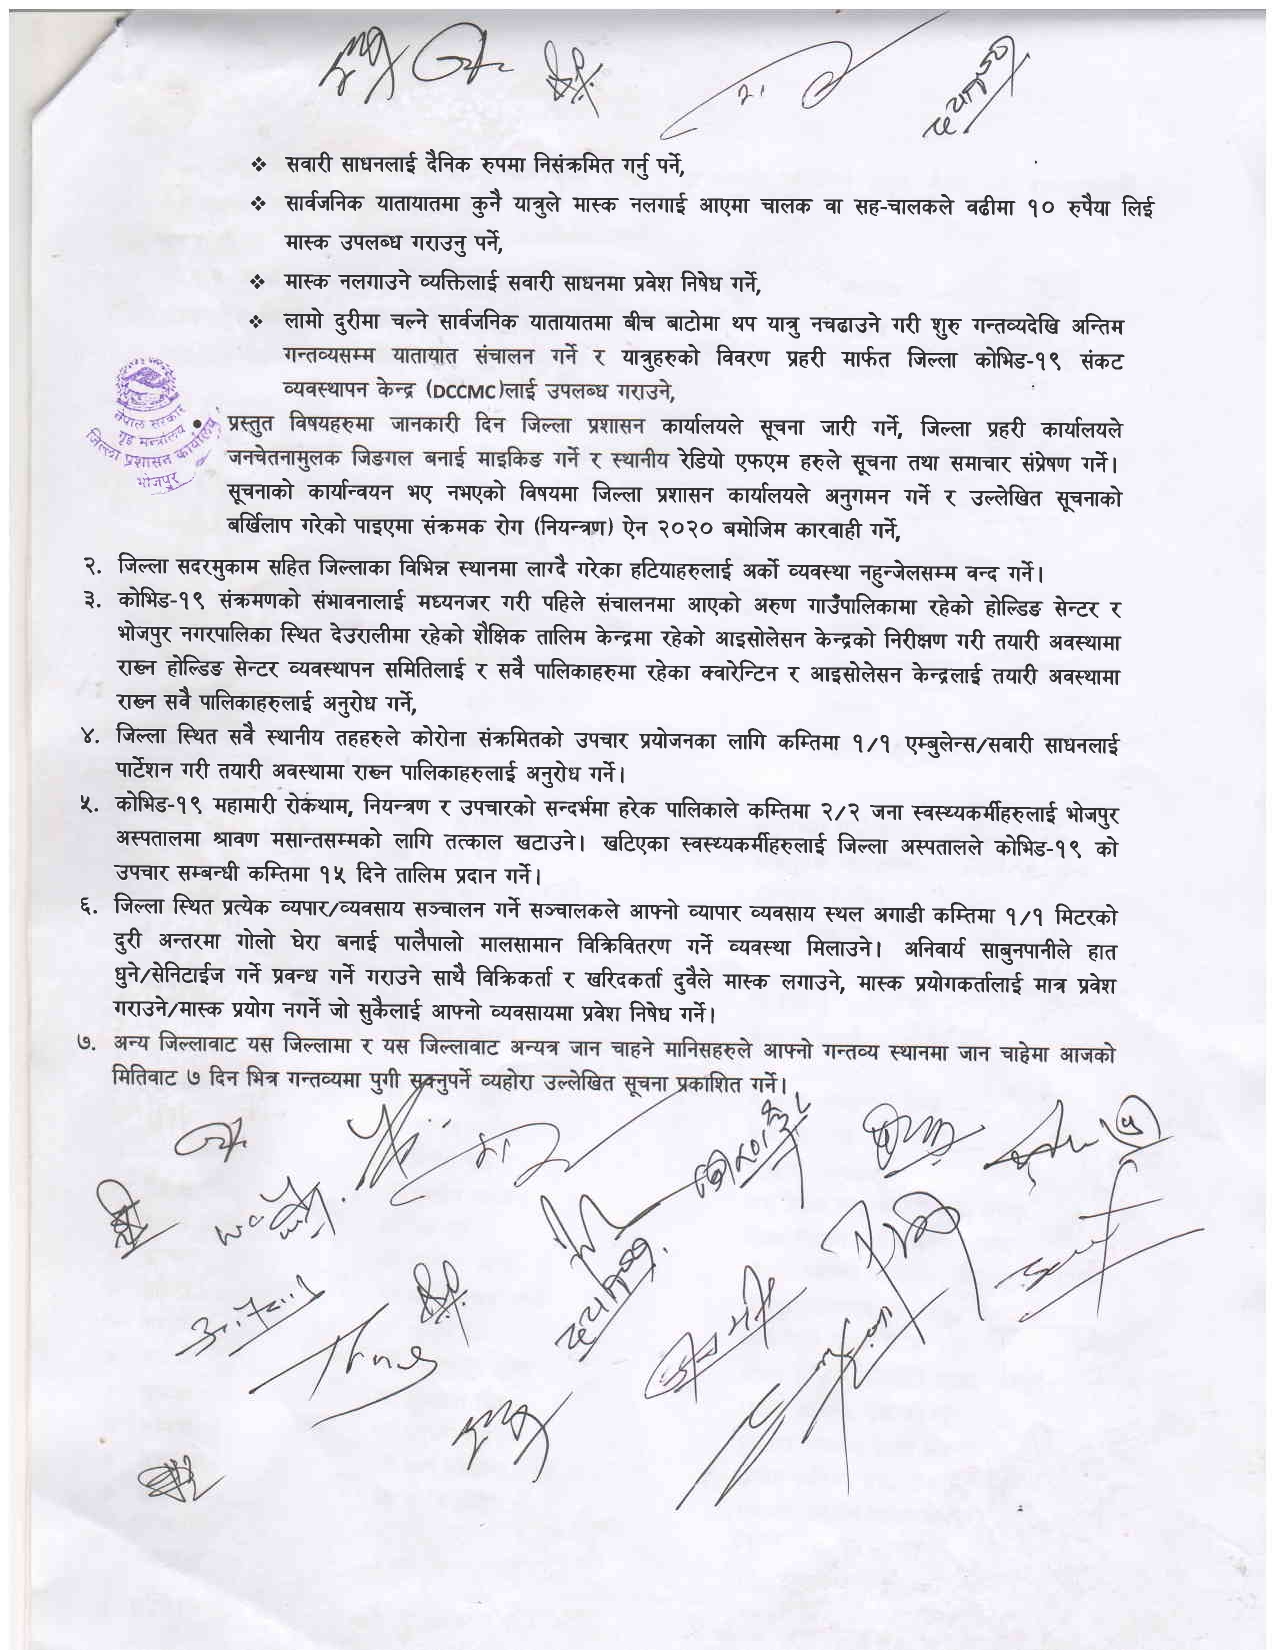 ❖ सवारी साधनलाई दैनिक रुपमा निसंक्रमित गर्नु पर्ने,
❖ सार्वजनिक यातायातमा कुनै यात्रुले मास्क नलगाई आएमा चालक वा सह-चालकले वढीमा १० रुपैया लिई
मास्क उपलब्ध गराउनु पर्ने,
❖ मास्क नलगाउने व्यक्तिलाई सवारी साधनमा प्रवेश निषेध गर्ने,
❖ लामो दुरीमा चल्ने सार्वजनिक यातायातमा बीच बाटोमा थप यात्रु नचढाउने गरी शुरु गन्तव्यदेखि अन्तिम
गन्तव्यसम्म यातायात संचालन गर्ने र यात्रुहरुको विवरण प्रहरी मार्फत जिल्ला कोभिड-१९ संकट
व्यवस्थापन केन्द्र (DCCMC)लाई उपलब्ध गराउने,
नेपाल सरकार
गृह मन्त्रालय
जिल्ला प्रशासन कार्यालय
भोजपुर
• प्रस्तुत विषयहरुमा जानकारी दिन जिल्ला प्रशासन कार्यालयले सूचना जारी गर्ने, जिल्ला प्रहरी कार्यालयले
जनचेतनामुलक जिङगल बनाई माइकिङ गर्ने र स्थानीय रेडियो एफएम हरुले सूचना तथा समाचार संप्रेषण गर्ने।
सूचनाको कार्यान्वयन भए नभएको विषयमा जिल्ला प्रशासन कार्यालयले अनुगमन गर्ने र उल्लेखित सूचनाको
बर्खिलाप गरेको पाइएमा संक्रमक रोग (नियन्त्रण) ऐन २०२० बमोजिम कारवाही गर्ने,
२. जिल्ला सदरमुकाम सहित जिल्लाका विभिन्न स्थानमा लाग्दै गरेका हटियाहरुलाई अर्को व्यवस्था नहुन्जेलसम्म वन्द गर्ने।
३. कोभिड-१९ संक्रमणको संभावनालाई मध्यनजर गरी पहिले संचालनमा आएको अरुण गाउँपालिकामा रहेको होल्डिङ सेन्टर र
भोजपुर नगरपालिका स्थित देउरालीमा रहेको शैक्षिक तालिम केन्द्रमा रहेको आइसोलेसन केन्द्रको निरीक्षण गरी तयारी अवस्थामा
राख्न होल्डिङ सेन्टर व्यवस्थापन समितिलाई र सवै पालिकाहरुमा रहेका क्वारेन्टिन र आइसोलेसन केन्द्रलाई तयारी अवस्थामा
राख्न सवै पालिकाहरुलाई अनुरोध गर्ने,
४. जिल्ला स्थित सवै स्थानीय तहहरुले कोरोना संक्रमितको उपचार प्रयोजनका लागि कम्तिमा १/१ एम्बुलेन्स/सवारी साधनलाई
पार्टेशन गरी तयारी अवस्थामा राख्न पालिकाहरुलाई अनुरोध गर्ने।
५. कोभिड-१९ महामारी रोकथाम, नियन्त्रण र उपचारको सन्दर्भमा हरेक पालिकाले कम्तिमा २/२ जना स्वस्थ्यकर्मीहरुलाई भोजपुर
अस्पतालमा श्रावण मसान्तसम्मको लागि तत्काल खटाउने। खटिएका स्वस्थ्यकर्मीहरुलाई जिल्ला अस्पतालले कोभिड-१९ को
उपचार सम्बन्धी कम्तिमा १५ दिने तालिम प्रदान गर्ने।
६. जिल्ला स्थित प्रत्येक व्यपार/व्यवसाय सञ्चालन गर्ने सञ्चालकले आफ्नो व्यापार व्यवसाय स्थल अगाडी कम्तिमा १/१ मिटरको
दुरी अन्तरमा गोलो घेरा बनाई पालैपालो मालसामान विक्रिवितरण गर्ने व्यवस्था मिलाउने। अनिवार्य साबुनपानीले हात
धुने/सेनिटाईज गर्ने प्रवन्ध गर्ने गराउने साथै विक्रिकर्ता र खरिदकर्ता दुवैले मास्क लगाउने, मास्क प्रयोगकर्तालाई मात्र प्रवेश
गराउने/मास्क प्रयोग नगर्ने जो सुकैलाई आफ्नो व्यवसायमा प्रवेश निषेध गर्ने।
७. अन्य जिल्लावाट यस जिल्लामा र यस जिल्लावाट अन्यत्र जान चाहने मानिसहरुले आफ्नो गन्तव्य स्थानमा जान चाहेमा आजको
मितिवाट ७ दिन भित्र गन्तव्यमा पुगी सक्नुपर्ने व्यहोरा उल्लेखित सूचना प्रकाशित गर्ने।